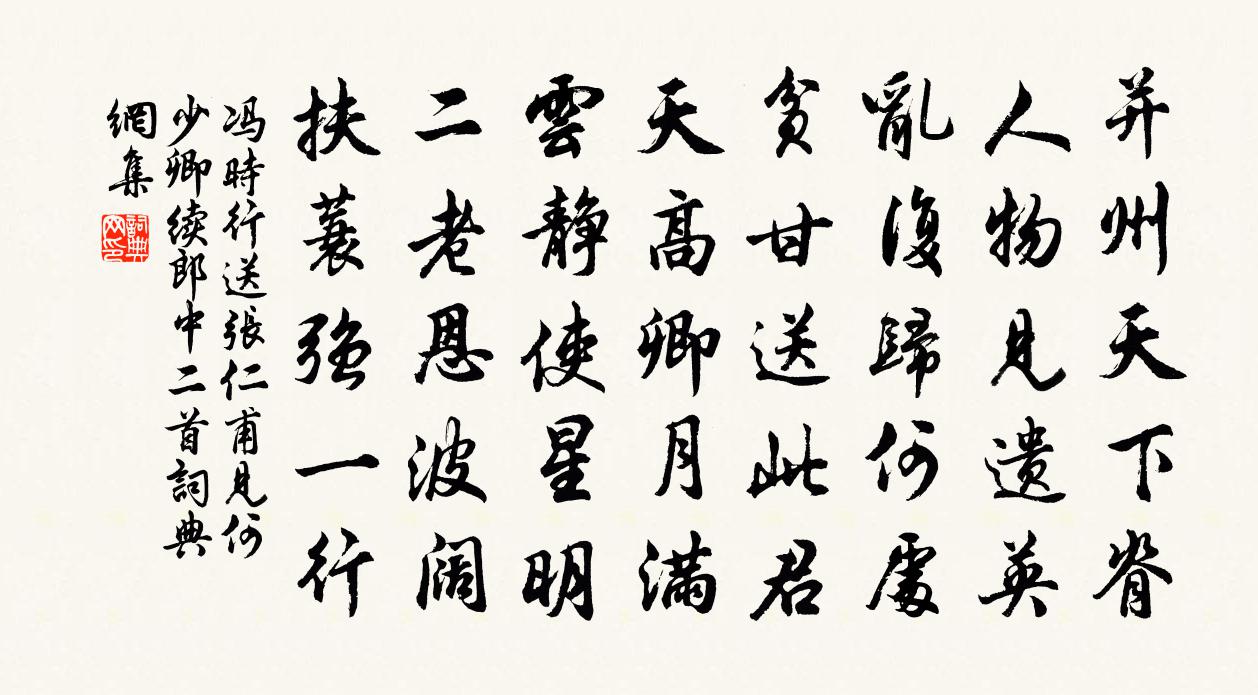 并州天下脊
人物見遺英
亂復歸何處
貧甘送此君
天高卿月滿
雲靜使星明
二老恩波阔
扶蓑强一行
冯時行送張仁甫見何
少卿续郎中二首詞典
網集
詞典
网印